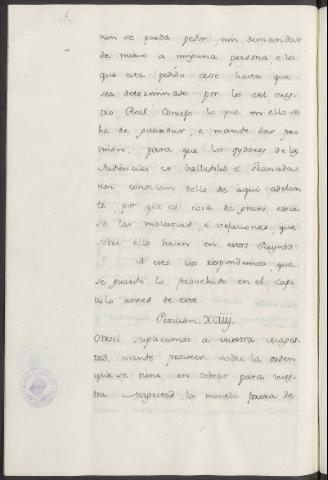 non se pueda pedir, nin demandar
de nuevo a ninguna persona e lo
que esta pedido cese hasta que
sea determinado por los del vues-
tro Real Consejo lo que en ello se
ha de guardar, e mande dar pro
vision, para que los oydores de las
Audiencias de Valladolid e Granada
non conoscan dello de aqui adelan
te, por que es cosa de gran exce
so las molestias e vejaciones, que
sobre ello hacen en estos Reynos.
A esto vos respondemos, que
se guarde lo provehido en el capi
tulo antes de este.
Peticion XCIIII.
Otrosi suplicamos a vuestra Mages-
tad, mande proveer sobre la orden
que se tiene en cobrar para vues-
tra Magestad la moneda forera de